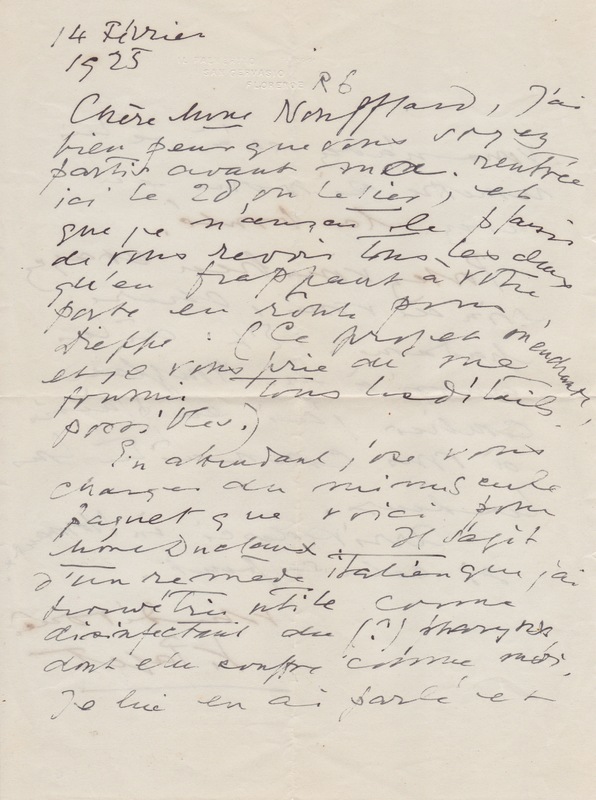 14 Février
1925
FLORENCE
R6
Chère Mme Noufflard, J'ai
bien peur que vous soyez
partis avant ma rentrée
ici le 28 ou le 1er, et
que je n'aurai le plaisir
de vous revoir tous les deux
qu'en frappant à votre
porte en route pour
Dieppe. (Ce projet m'enchante,
et je vous prie de me
fournir tous les détails
possibles.)
En attendant j'ose vous
charger du minuscule
paquet que voici pour
Mme Duclaux. Il s'agit
d'un remède italien que j'ai
trouvé très utile comme
disinfectant du (?) pharynx
dont elle souffre comme moi.
Je lui en ai parlé et